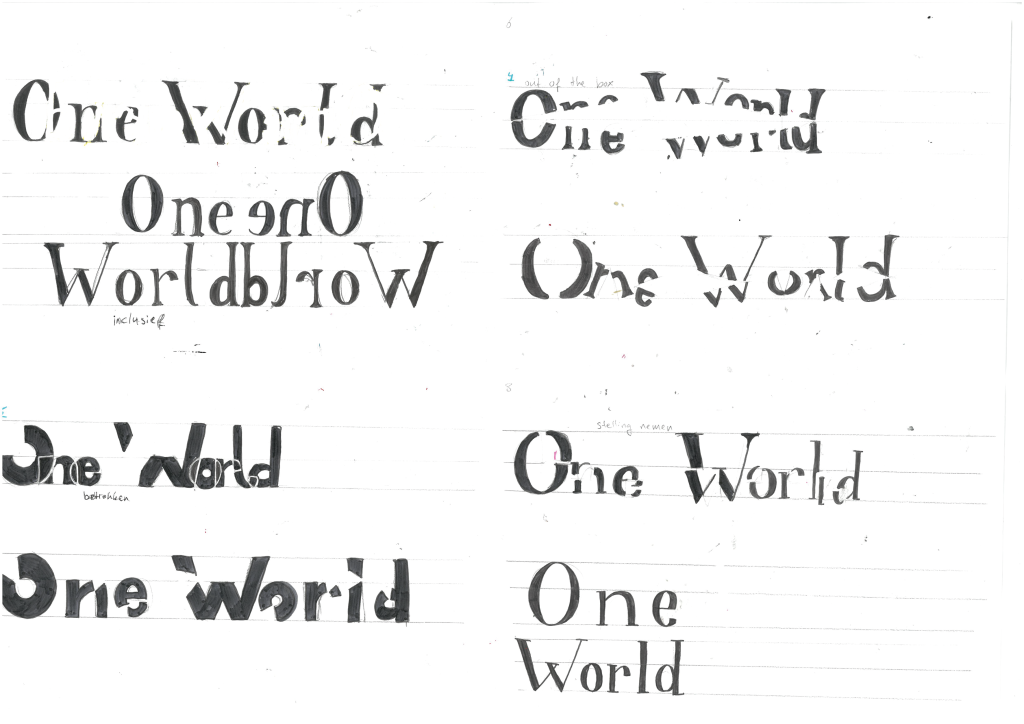 One World
One One
World World
inclusief
One World
betrokken
One World
6
4
out of the box
One World
One World
8
stelling nemen
One World
One
World